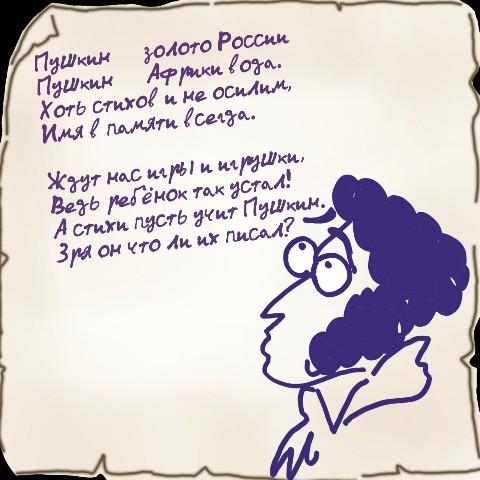 Пушкин золото России
Пушкин Африки вода.
Хоть стихов и не осилим,
Имя в памяти всегда.
Ждут нас игры и игрушки,
Ведь ребёнок так устал!
А стихи пусть учит Пушкин.
Зря он что ли их писал?